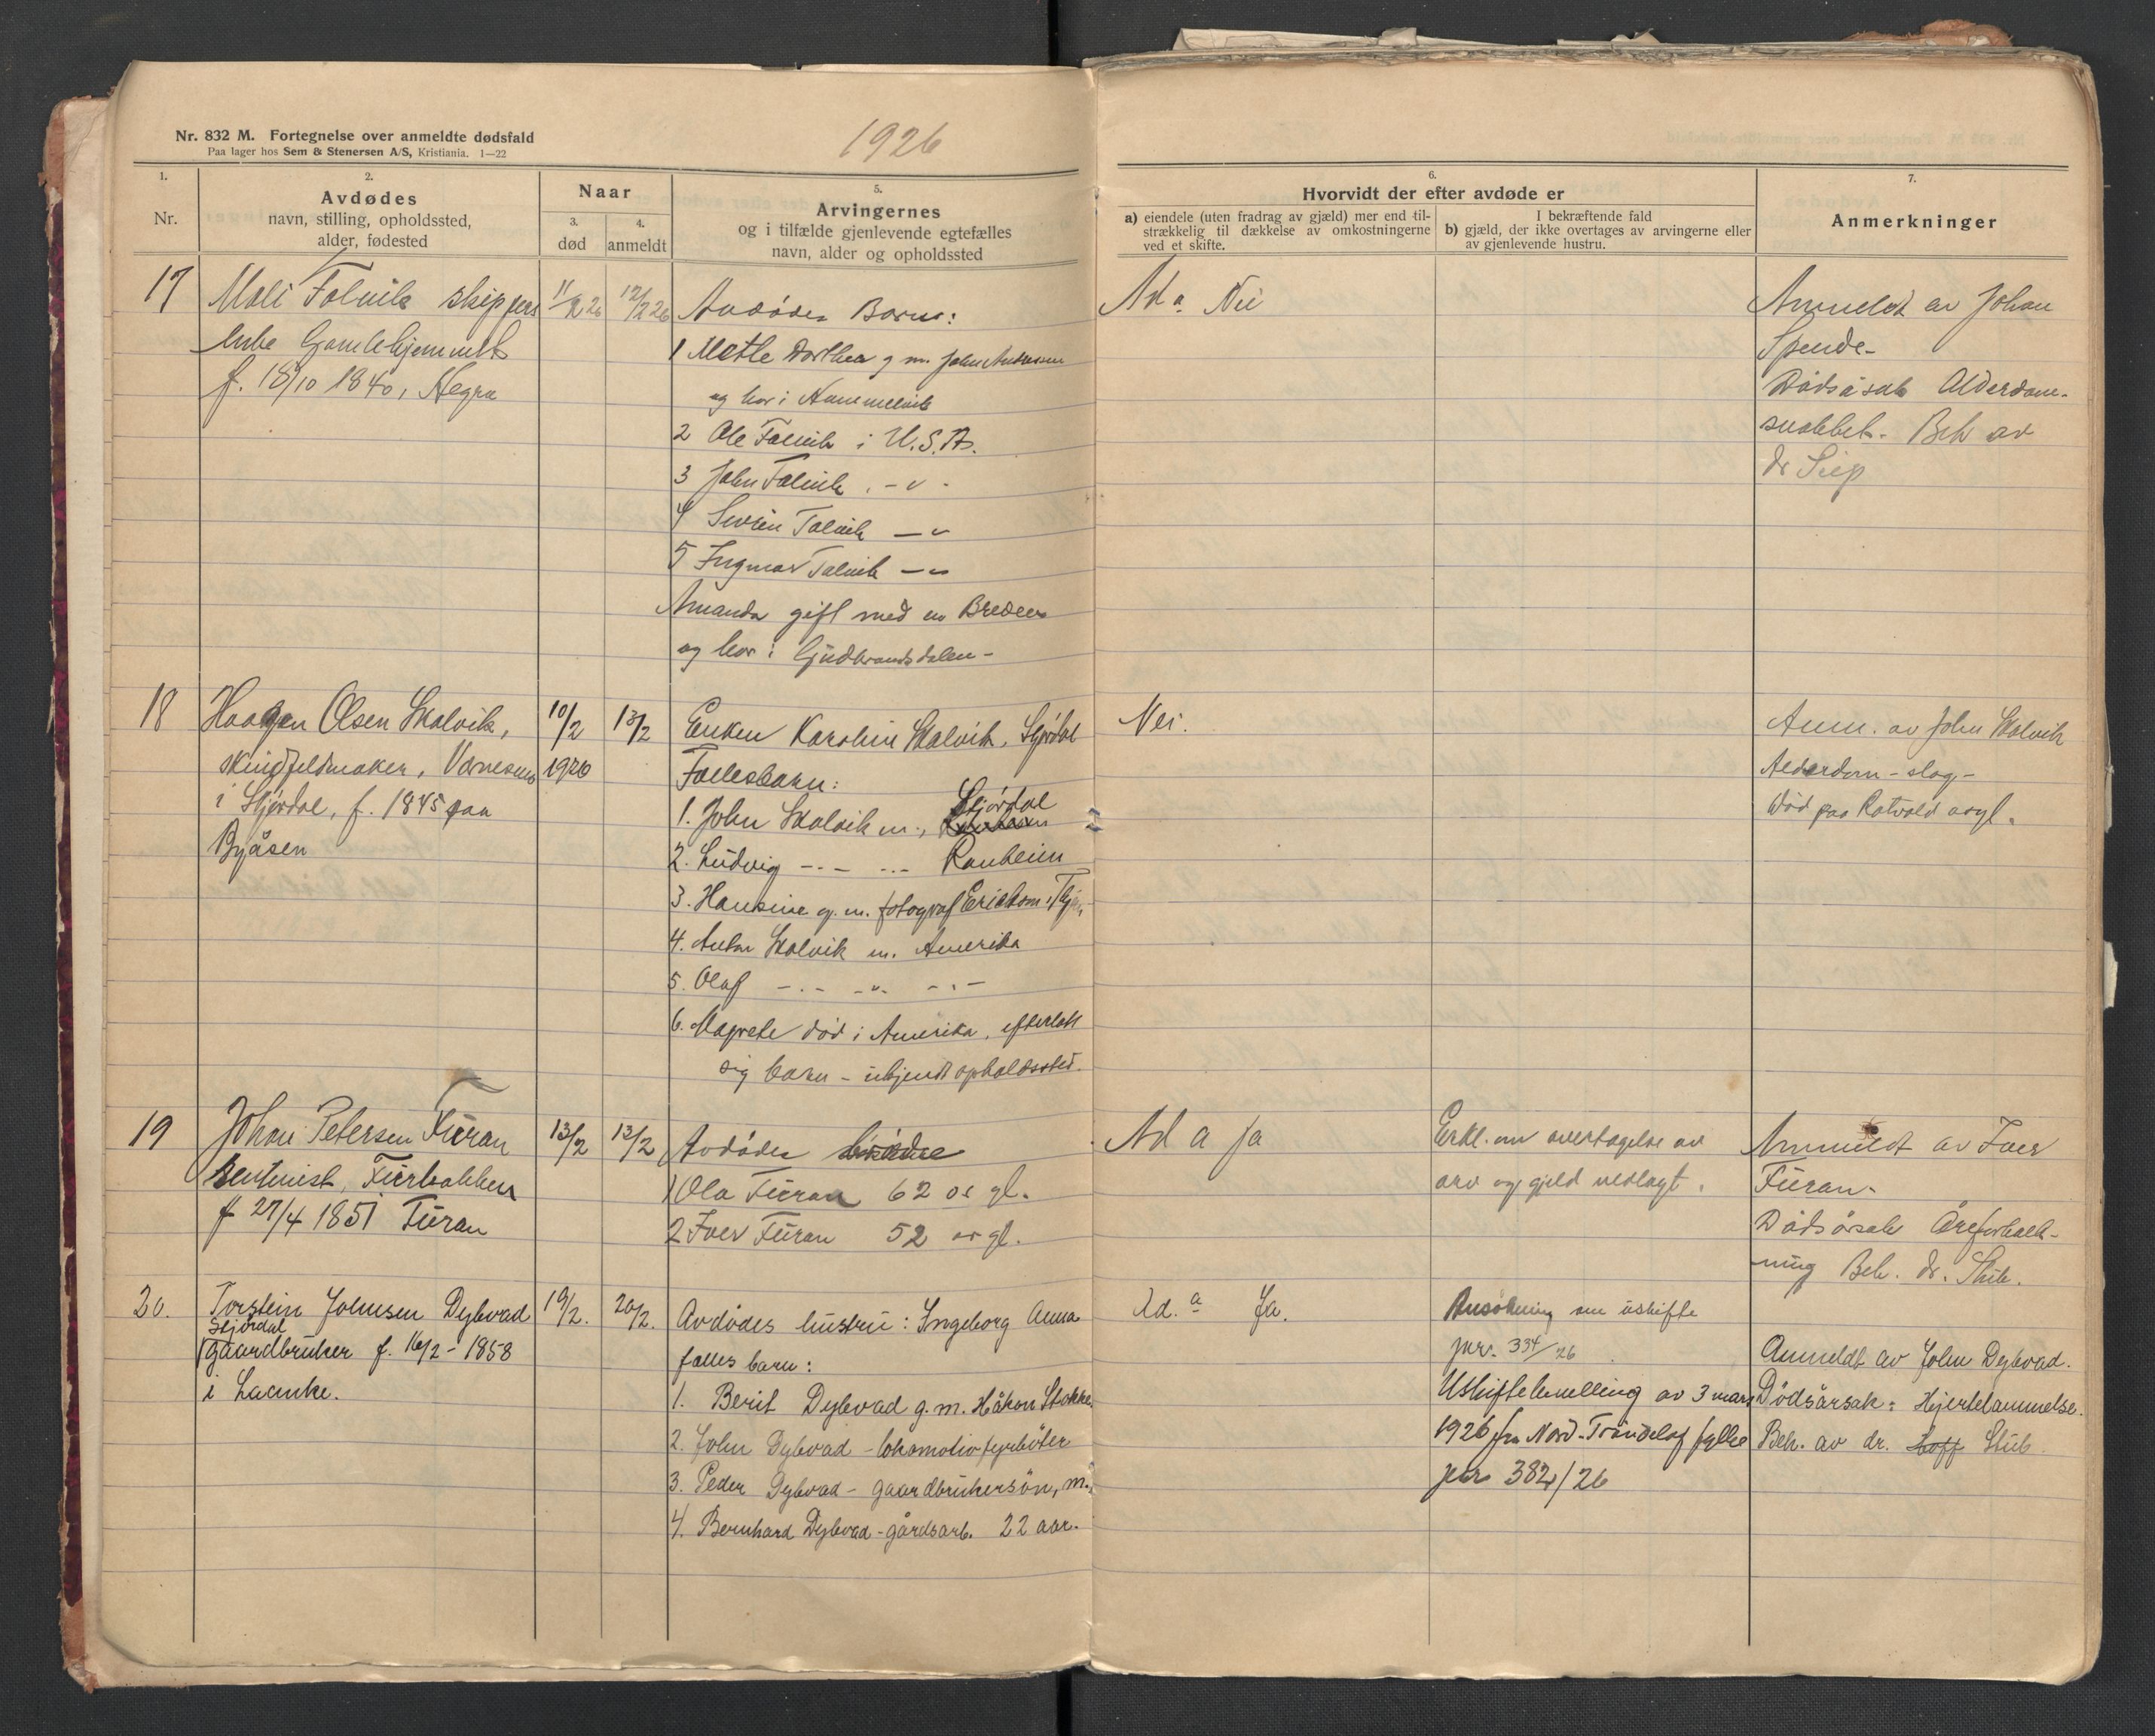 Nr. 832 M. Fortegnelse over anmeldte dødsfald
Paa lager hos Sem & Stenersen A/S, Kristiania. 1—22
1926
1.
Nr.
2.
Avdødes
navn, stilling, opholdssted,
alder, fødested
Naar
3.
død
4.
anmeldt
5.
Arvingernes
og i tilfælde gjenlevende egtefælles
navn, alder og opholdssted
6.
Hvorvidt der efter avdøde er
a) eiendele (uten fradrag av gjæld) mer end til-
strækkelig til dækkelse av omkostningerne
ved et skifte.
I bekræftende fald
b) gjæld, der ikke overtages av arvingerne eller
av gjenlevende hustru.
7.
Anmerkninger
17
Mali Folvik skippers
enke Gamlehjemmet
f. 18/10 1840, Hegra
11/2 26
12/2 26
Avdødes Barn:
1 Mette Dorthea g m. John
og bor i Hammelvik
2 Ole Folvik i U.S.A.
3 John Folvik - " -
4 Folvik - "
5 Ingmar Folvik - "
Amanda gift med en
og bor i Gudbrandsdalen -
Ad a. Nei
Anmeldt av Johan
Spende -
Dødsåsak Alderdom-
svakket. Beh av
dr
18
Haagen Olsen Skalvik,
skindfeldmaker, Værnes
i Stjørdal, f. 1845 paa
Byåsen
10/2
1926
13/2
Enken Karoline Skalvik, Stjørdal
Fællesbarn:
1. John Skalvik m., Stjørdal
2. Ludvig -.- -.- Ranheim
3. Hansine g. m. fotograf
4. Anton Skalvik m. Amerika
5. Olaf -.- -.- -.-
6. Magrete død i Amerika, efterlatt
sig barn - ukjendt opholdssted.
Nei.
Anm. av John Skalvik
Alderdom - slag -
Død paa Rotvold asyl.
19
Johan Petersen Furan
Rentenist, Furbakken
f 27/4 1851 Furan
13/2
13/2
Avdødes brødre
1 Ola Furan 62 år gl.
2 Iver Furan 52 år gl.
Ad a Ja
Erkl. om overtagelse av
arv og gjeld vedlagt.
Anmeldt av Iver
Furan -
Dødsårsak Åreforkalk-
ning Beh. dr. Stub.
20.
Torstein Johnsen Dybvad
Stjørdal
Gaardbruker f. 16/2 - 1858
i Laanke.
19/2.
20/2.
Avdødes hustru: Ingeborg Anna
fælles barn:
1. Berit Dybvad g. m. Håkon Stokke.
2. John Dybvad - lokomotivfyrbøter
3. Peder Dybvad - gaardbrukersøn, m.
4. Bernhard Dybvad - gårdsarb. 22 aar.
Ad. a Ja.
Ansøkning om uskifte
jnr. 334/26
Uskiftebevilling av 3 mars
1926 fra Nord-Trøndelag fylke
jnr 382/26
Anmeldt av John Dybvad.
Dødsårsak: Hjertelammelse.
Beh. av dr. Hoff Stub.